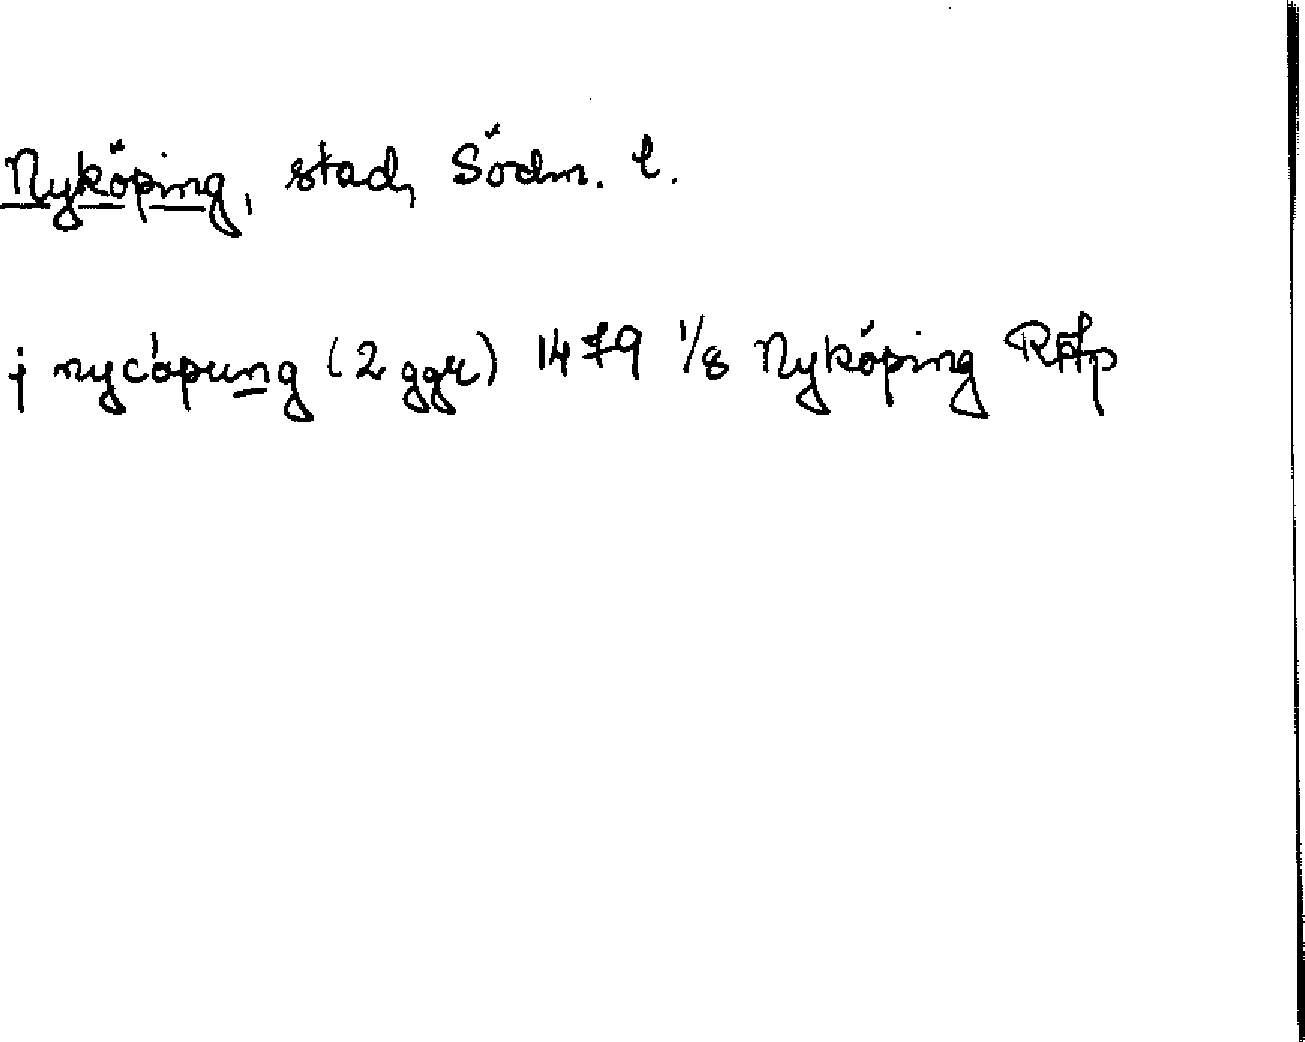 Nyköping, stad, Södm. l.
j nycópung (2 ggr) 1479 1/8 Nyköping RAp